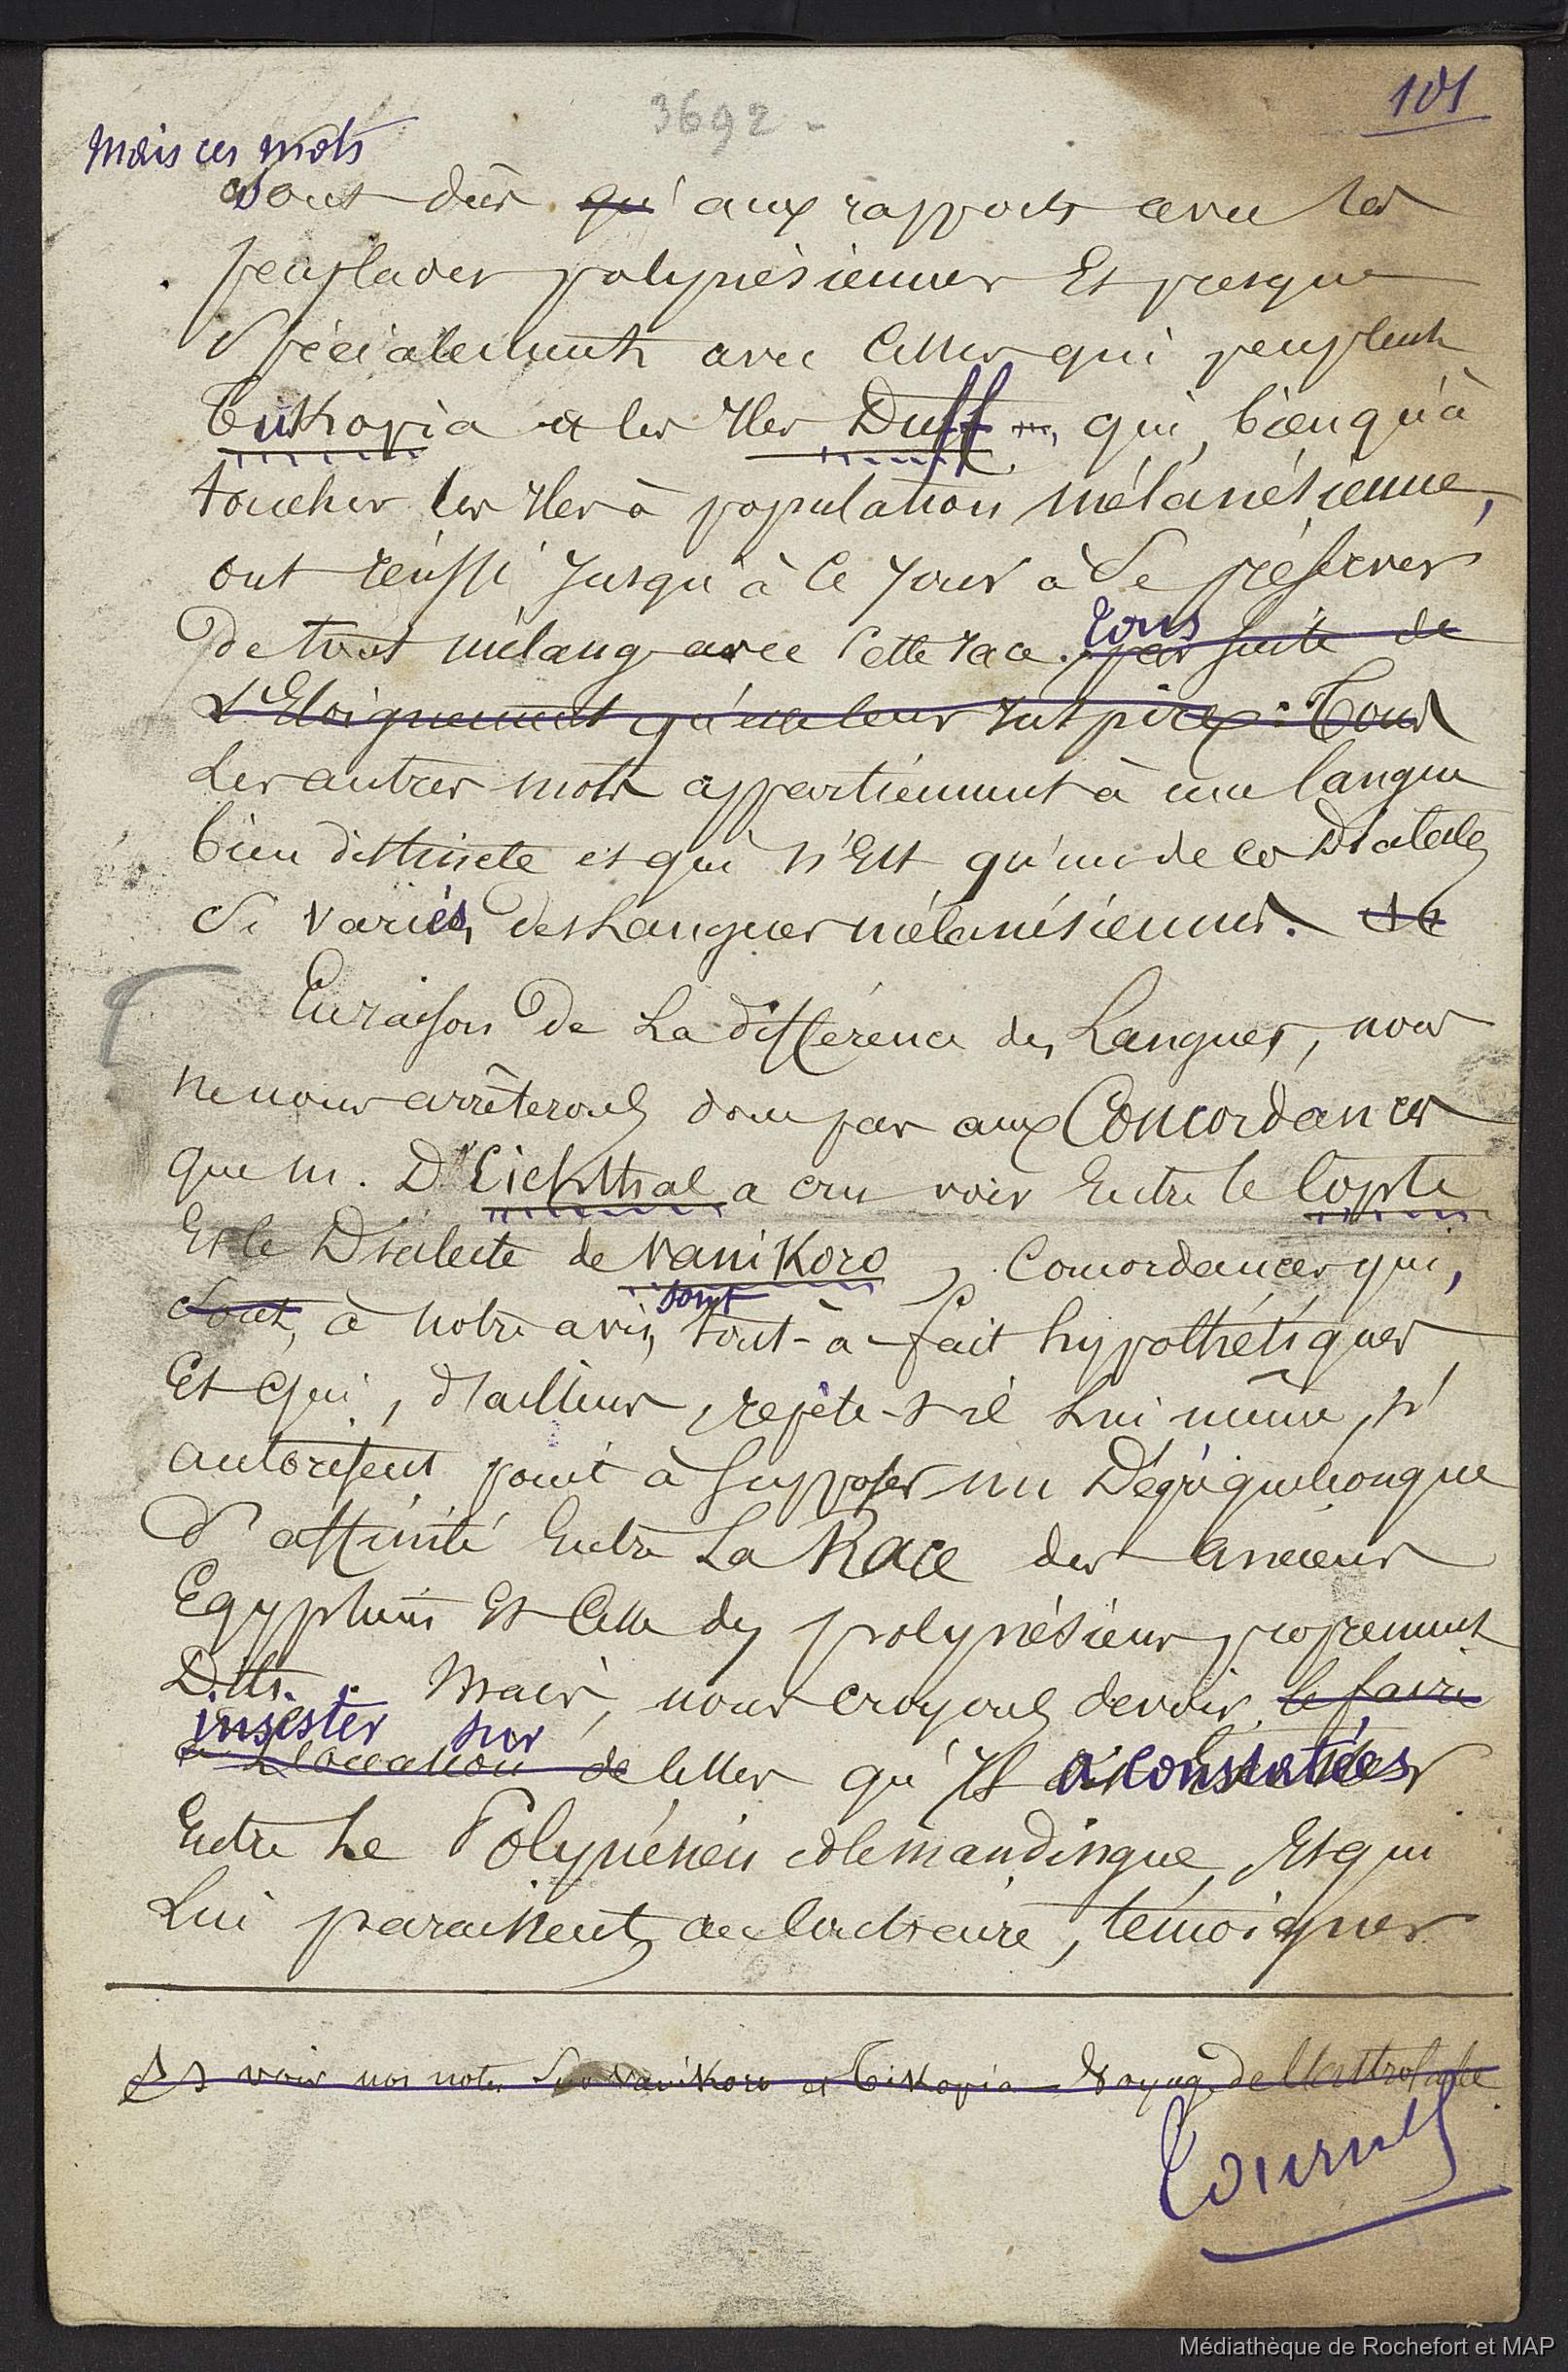 3692 -
101
Mais ces mots
sont dûs qu' aux rapports avec les
peuplades polynésiennes Et presque
Spécialement avec Celles qui peuplent
Tukopia et les Iles Duff, qui, bien qu'à
toucher les Iles à population mélanésienne,
ont réussi jusqu'à Ce jour à Se préserver
De tout mélange avec Cette race. Tous par suite de
L'Eloignement qu'elle leur Inspire: Tous
Les autres mots appartiennent à une langue
bien distincte et qui n'Est qu'un de ces Dialectes
Si variés, des Langues mélanésiennes. 
En raison De La différence des Langues, nous
ne nous arrêterons donc pas aux Concordances
que M. D'Eichthal a cru voir Entre le Copte
Et le Dialecte de Vanikoro, Concordances qui,
Sont, à notre avis, sont tout-à-fait hypothétiques
Et qui, d'ailleurs, répète-t-il Lui même, n'
autorisent point à Supposer un Dégré quelconque
d'affinité Entre La Race des anciens
Egyptiens Et Celle des polynésiens proprement
Dits. Mais, nous croyons devoir le faire
insister sur
à L'occasion de Celles qu'Il a constatées
Entre Le Polynésien et le mandingue, Et qui
Lui paraissent, au contraire, témoigner
voir nos notes Sur Vanikoro et Tikopia - Voyage de l'Astrolabe
Tournez
Médiathèque de Rochefort et MAP